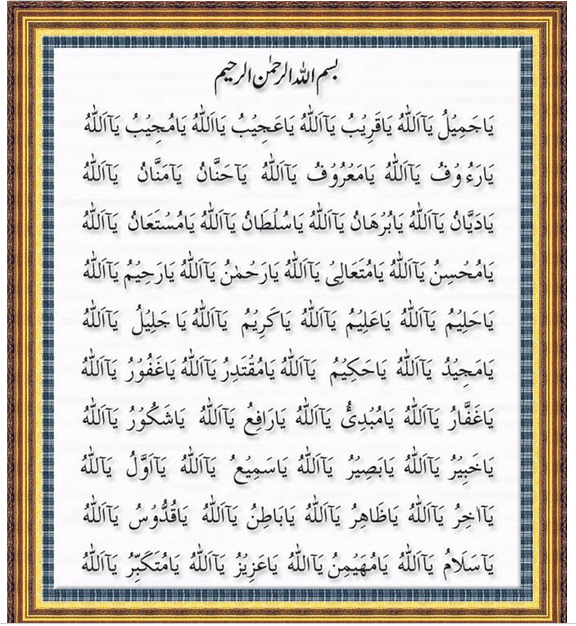 بسم اللہ الرحمٰن الرحیم
یَاجَمِیْلُ یَآاَللّٰهُ یَاقَرِیْبُ یَآاَللّٰهُ یَاعَجِیْبُ یَااَللّٰهُ یَامُجِیْبُ یَآاَللّٰهُ
یَارَءُوْفُ یَآاَللّٰهُ یَامَعْرُوْفُ یَآاَللّٰهُ یَآحَنَّانُ یَآمَنَّانُ یَآاَللّٰهُ
یَادَیَّانُ یَآاَللّٰهُ یَابُرْهَانُ یَآاَللّٰهُ یَاسُلْطَانُ یَآاَللّٰهُ یَامُسْتَعَانُ یَآاَللّٰهُ
یَامُحْسِنُ یَآاَللّٰهُ یَامُتَعَالِیْ یَآاَللّٰهُ یَارَحْمٰنُ یَآاَللّٰهُ یَارَحِیْمُ یَآاَللّٰهُ
یَاحَلِیْمُ یَآاَللّٰهُ یَاعَلِیْمُ یَآاَللّٰهُ یَاکَرِیْمُ یَآاَللّٰهُ یَا جَلِیْلُ یَآاَللّٰهُ
یَامَجِیْدُ یَآاَللّٰهُ یَاحَکِیْمُ یَآاَللّٰهُ یَامُقْتَدِرُ یَآاَللّٰهُ یَاغَفُوْرُ یَآاَللّٰهُ
یَاغَفَّارُ یَآاَللّٰهُ یَامُبْدِئُ یَآاَللّٰهُ یَارَافِعُ یَآاَللّٰهُ یَاشَکُوْرُ یَآاَللّٰهُ
یَاخَبِیْرُ یَآاَللّٰهُ یَابَصِیْرُ یَآاَللّٰهُ یَاسَمِیْعُ یَآاَللّٰهُ یَآاَوَّلُ یَآاَللّٰهُ
یَآاٰخِرُ یَآاَللّٰهُ یَاظَاهِرُ یَآاَللّٰهُ یَابَاطِنُ یَآاَللّٰهُ یَاقُدُّوْسُ یَآاَللّٰهُ
یَآسَلَامُ یَآاَللّٰهُ یَامُهَیْمِنُ یَآاَللّٰهُ یَاعَزِیْزُ یَآاَللّٰهُ یَامُتَکَبِّرُ یَآاَللّٰهُ